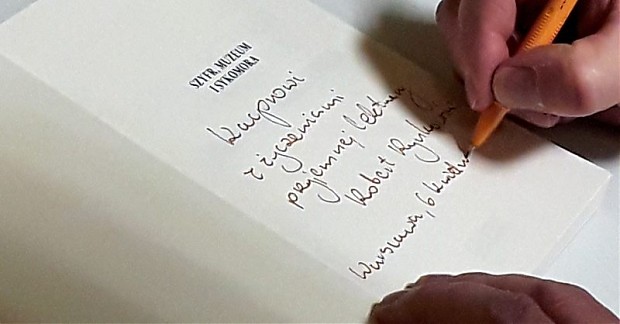 SZYFR, MUZEUM
I SYKOMORA
Kacprowi
z życzeniami
przyjemnej lektury
Robert
Warszawa, 6